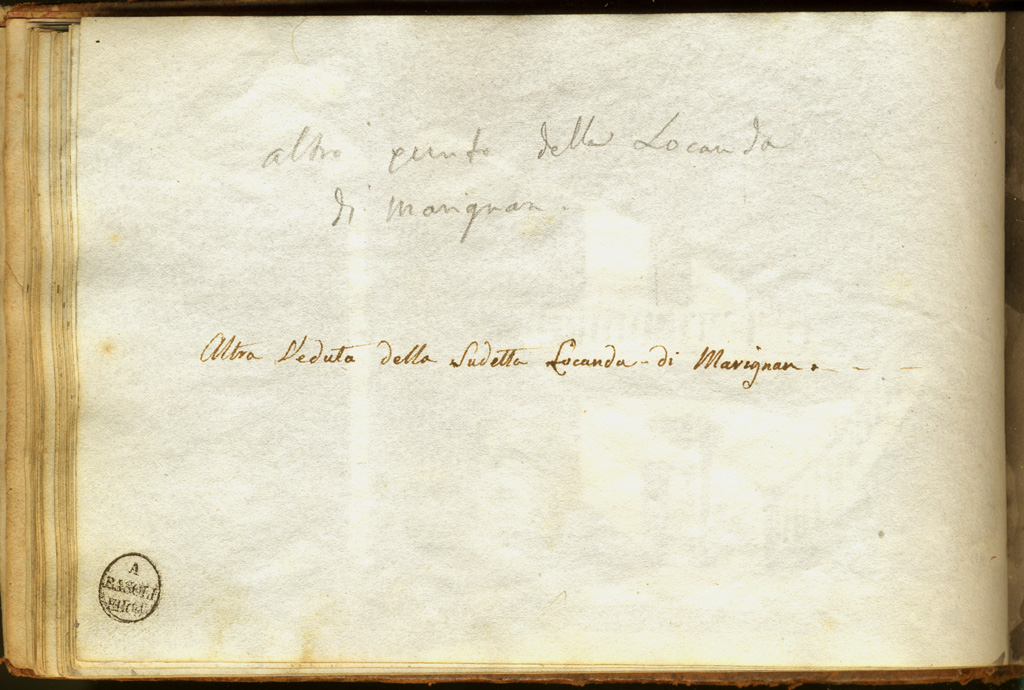 altro punto della Locanda
di Marignan.
Altra Veduta della Sudetta Locanda - di Marignan . - - -
A
BASOLI